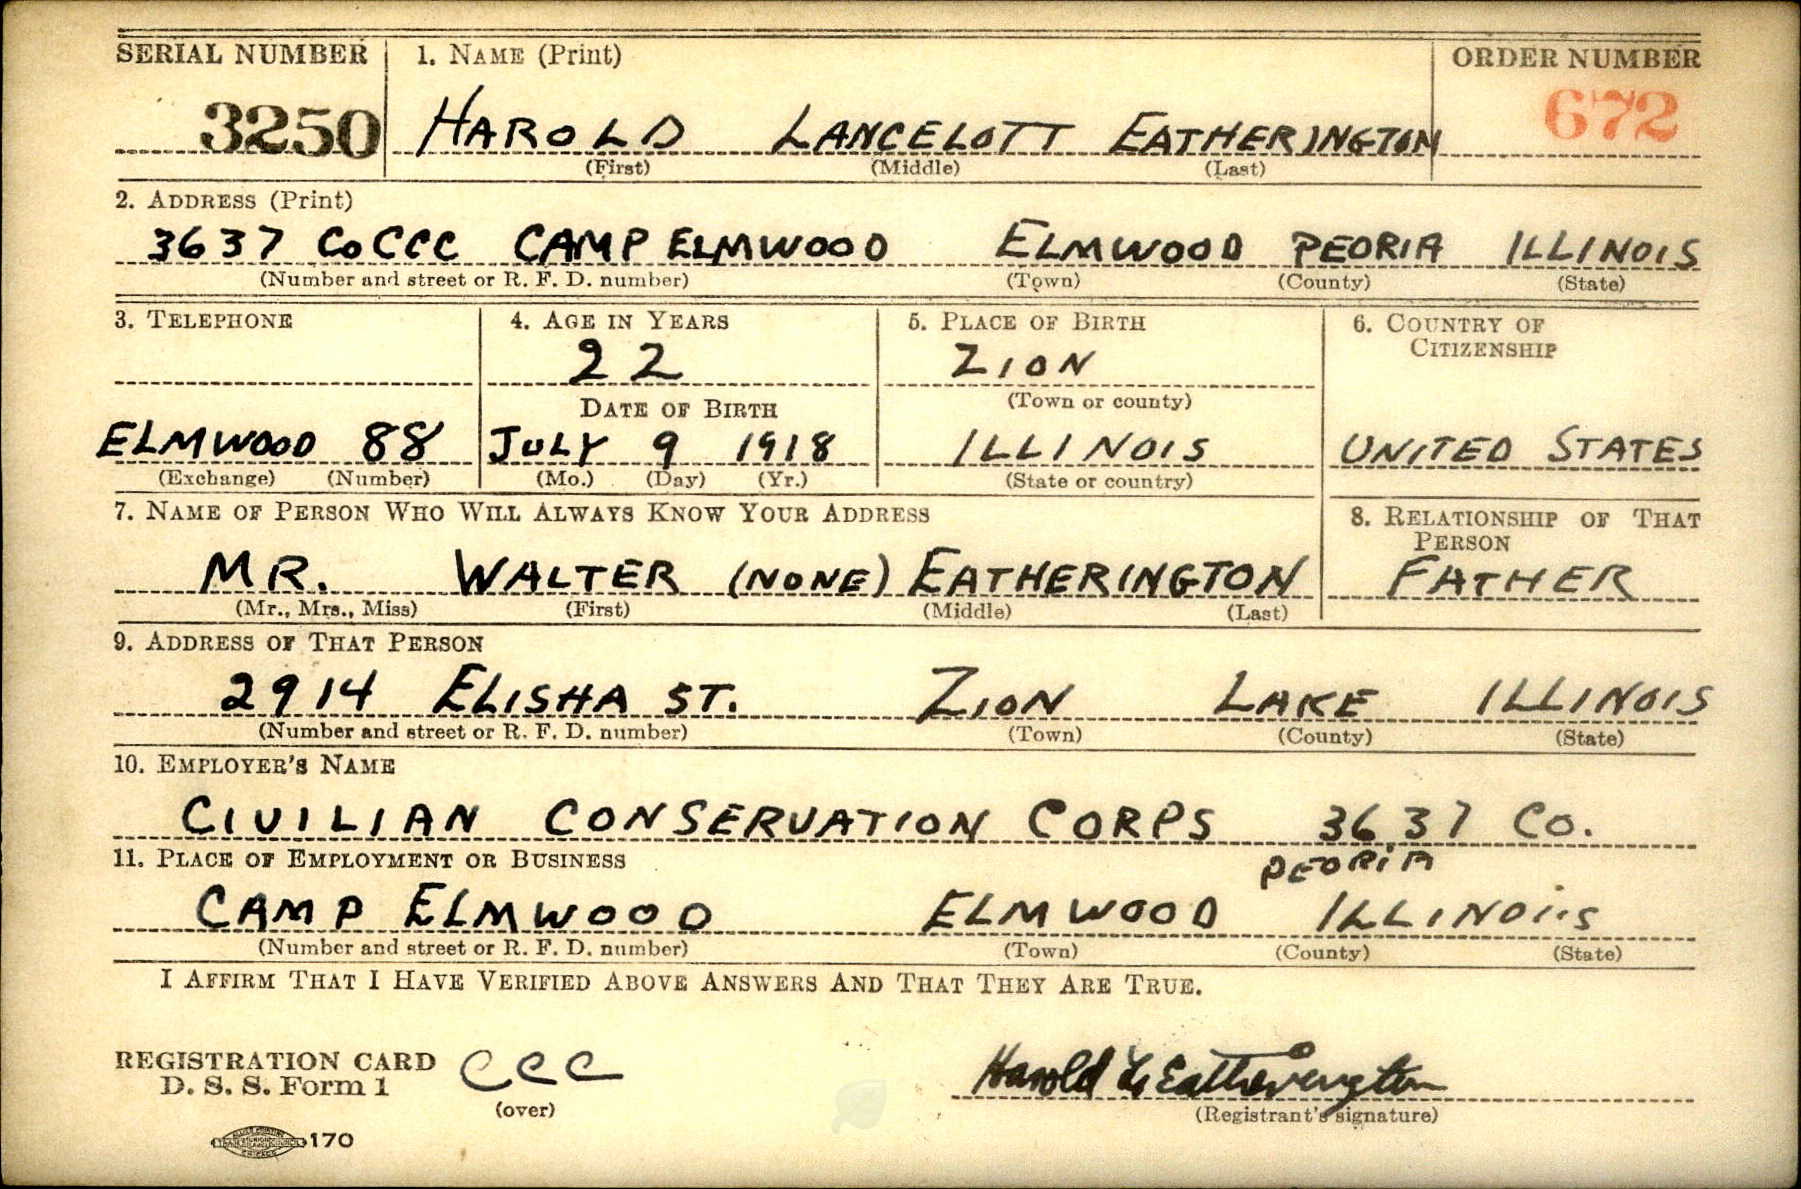 SERIAL NUMBER 1. NAME (Print) ORDER NUMBER
3250 HAROLD LANCELOTT EATHERINGTON 672
(First) (Middle) (Last)
2. ADDRESS (Print)
3637 Co CCC CAMP ELMWOOD ELMWOOD PEORIA ILLINOIS
(Number and street or R. F. D. number) (Town) (County) (State)
3. TELEPHONE 4. AGE IN YEARS 5. PLACE OF BIRTH 6. COUNTRY OF CITIZENSHIP
22 ZION
DATE OF BIRTH (Town or county)
ELMWOOD 88 JULY 9 1918 ILLINOIS UNITED STATES
(Exchange) (Number) (Mo.) (Day) (Yr.) (State or country)
7. NAME OF PERSON WHO WILL ALWAYS KNOW YOUR ADDRESS 8. RELATIONSHIP OF THAT PERSON
MR. WALTER (NONE) EATHERINGTON FATHER
(Mr., Mrs., Miss) (First) (Middle) (Last)
9. ADDRESS OF THAT PERSON
2914 ELISHA ST. ZION LAKE ILLINOIS
(Number and street or R. F. D. number) (Town) (County) (State)
10. EMPLOYER'S NAME
CIVILIAN CONSERVATION CORPS 3637 CO.
11. PLACE OF EMPLOYMENT OR BUSINESS
PEORIA
CAMP ELMWOOD ELMWOOD ILLINOIS
(Number and street or R. F. D. number) (Town) (County) (State)
I AFFIRM THAT I HAVE VERIFIED ABOVE ANSWERS AND THAT THEY ARE TRUE.
REGISTRATION CARD CCC Harold L Eatherington
D. S. S. Form 1
(over) (Registrant's signature)
170